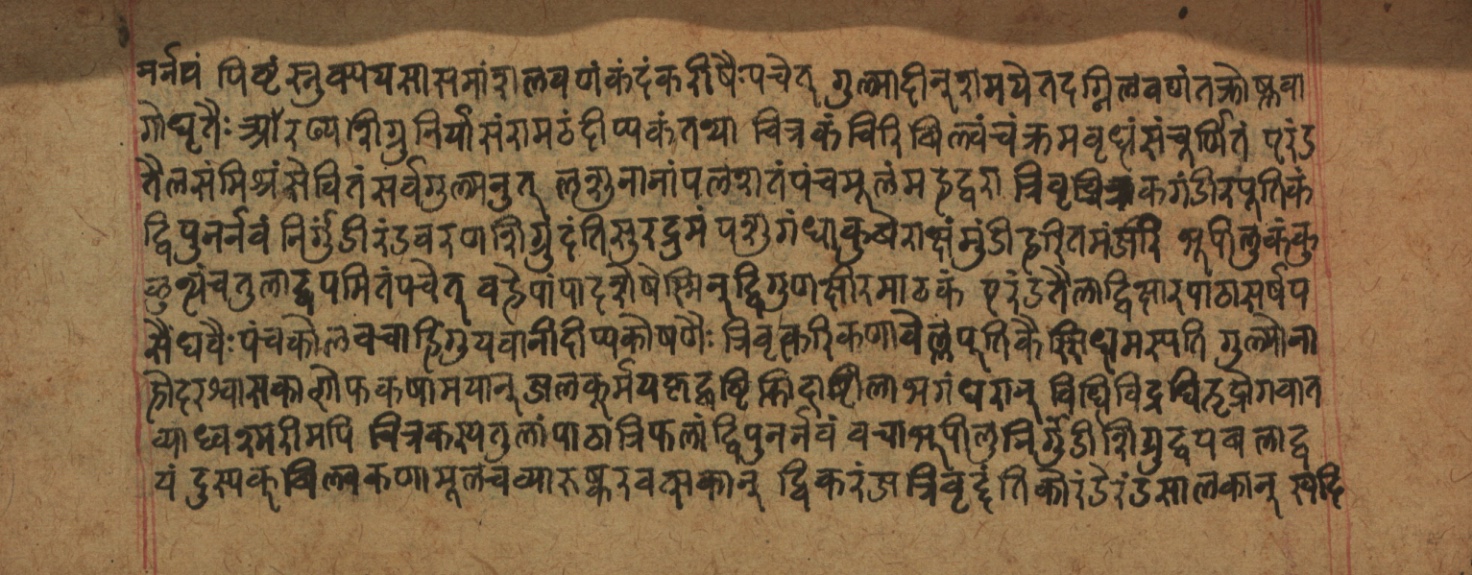 नर्नवं पिष्टं स्नुक्पयसा समांशलवणं कंदं करीषैः पचेत् गुल्मादीन् शमयेतदग्निलवणं तक्रोष्णवा
गोघृतैः आरण्ये शिग्रुनिर्यासं रामठं दीप्यकं तथा चित्रकं चिरिबिल्वं च क्रमवृध्दं संचूर्णितं एरंड
तैलसंमिश्रं सेवितं सर्वगुल्मनुत् लशुनानां पलशतं पंचमूलं महद्वरा त्रिवृच्चित्रकगंडीरपूतिकं
द्विपुनर्नवं निर्गुंडीरंडवरणशिग्रुदंतिसुरद्रुमं पशुगंधा कुबेराक्षं मुंडीहरितमंजरि भूपीलुकं कु
ळथ्यं च तुलार्द्धपमितं पचेत् वहेपां पादशेषेस्मिन् द्विगुणक्षीरमाठकं एरंडतैलाद्विक्षारपाठासर्षप
सैंधवैः पंचकोलवचाहिंगुयवानीदीप्यकोषणैः त्रिवृत्करिकणावेल्लपूतिकै स्सिध्धमस्पति गुल्मोना
होदरश्वासकाशोफकषामयान् जलकूर्मयकृद्ध
व्याध्वश्मरीमपि चित्रकस्यतुलां पाठात्रिफलां द्विपुनर्नवं वचाभूपीलुनिर्गुंडीशिग्रुद्वयबलाद्व
यं दुस्पकबिल्वकणामूलचव्यारुष्करवत्सकान् द्विकरंजत्रिवृद्दंतिकोरंडेरंडसालकान्